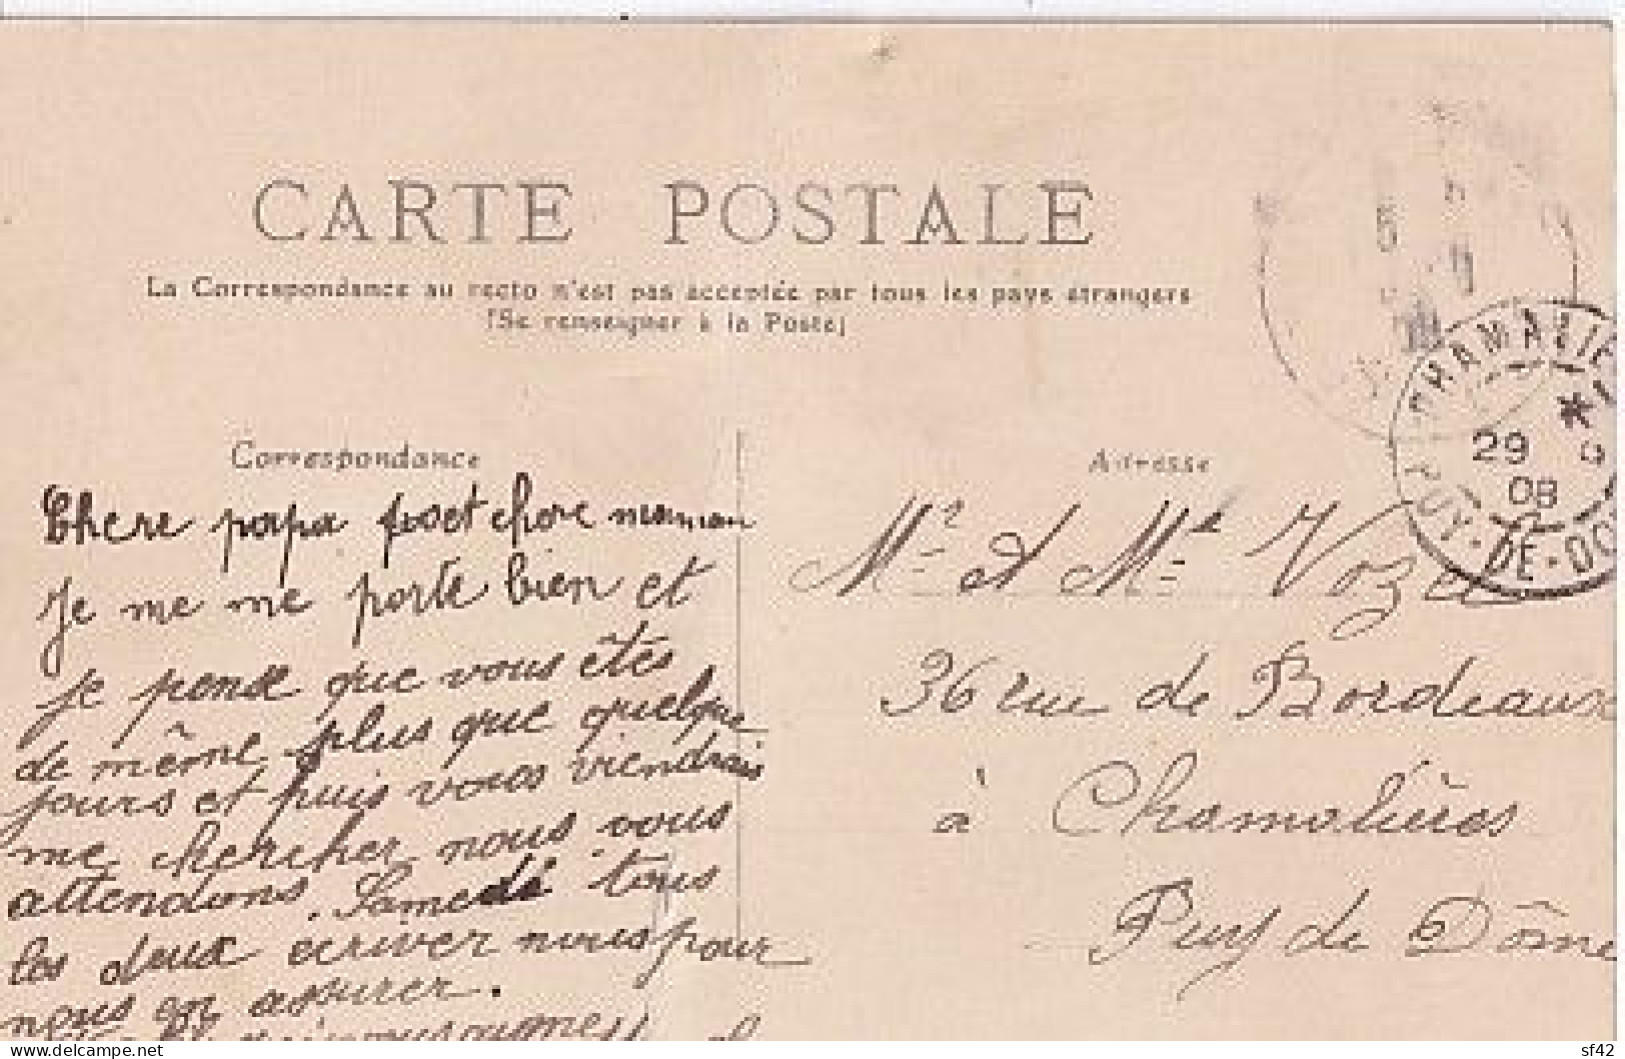 CARTE POSTALE
La Correspondance au recto n'est pas acceptée par tous les pays étrangers
(Se renseigner à la Poste)
Correspondance
Chere papa et chere maman
Je me me porte bien et
je pense que vous êtes
de même plus que quelque
jours et puis vous viendrais
me chercher nous vous
attendons. Samedi tous
les deux ecriver nous pour
nous en assurer.
Adresse
Mr et Me Vozel
36 rue de Bordeaux
à Chamalières
Puy de Dôme
CHAMALIE
29
08
PUY-DE-DO
delcampe.net
sf42